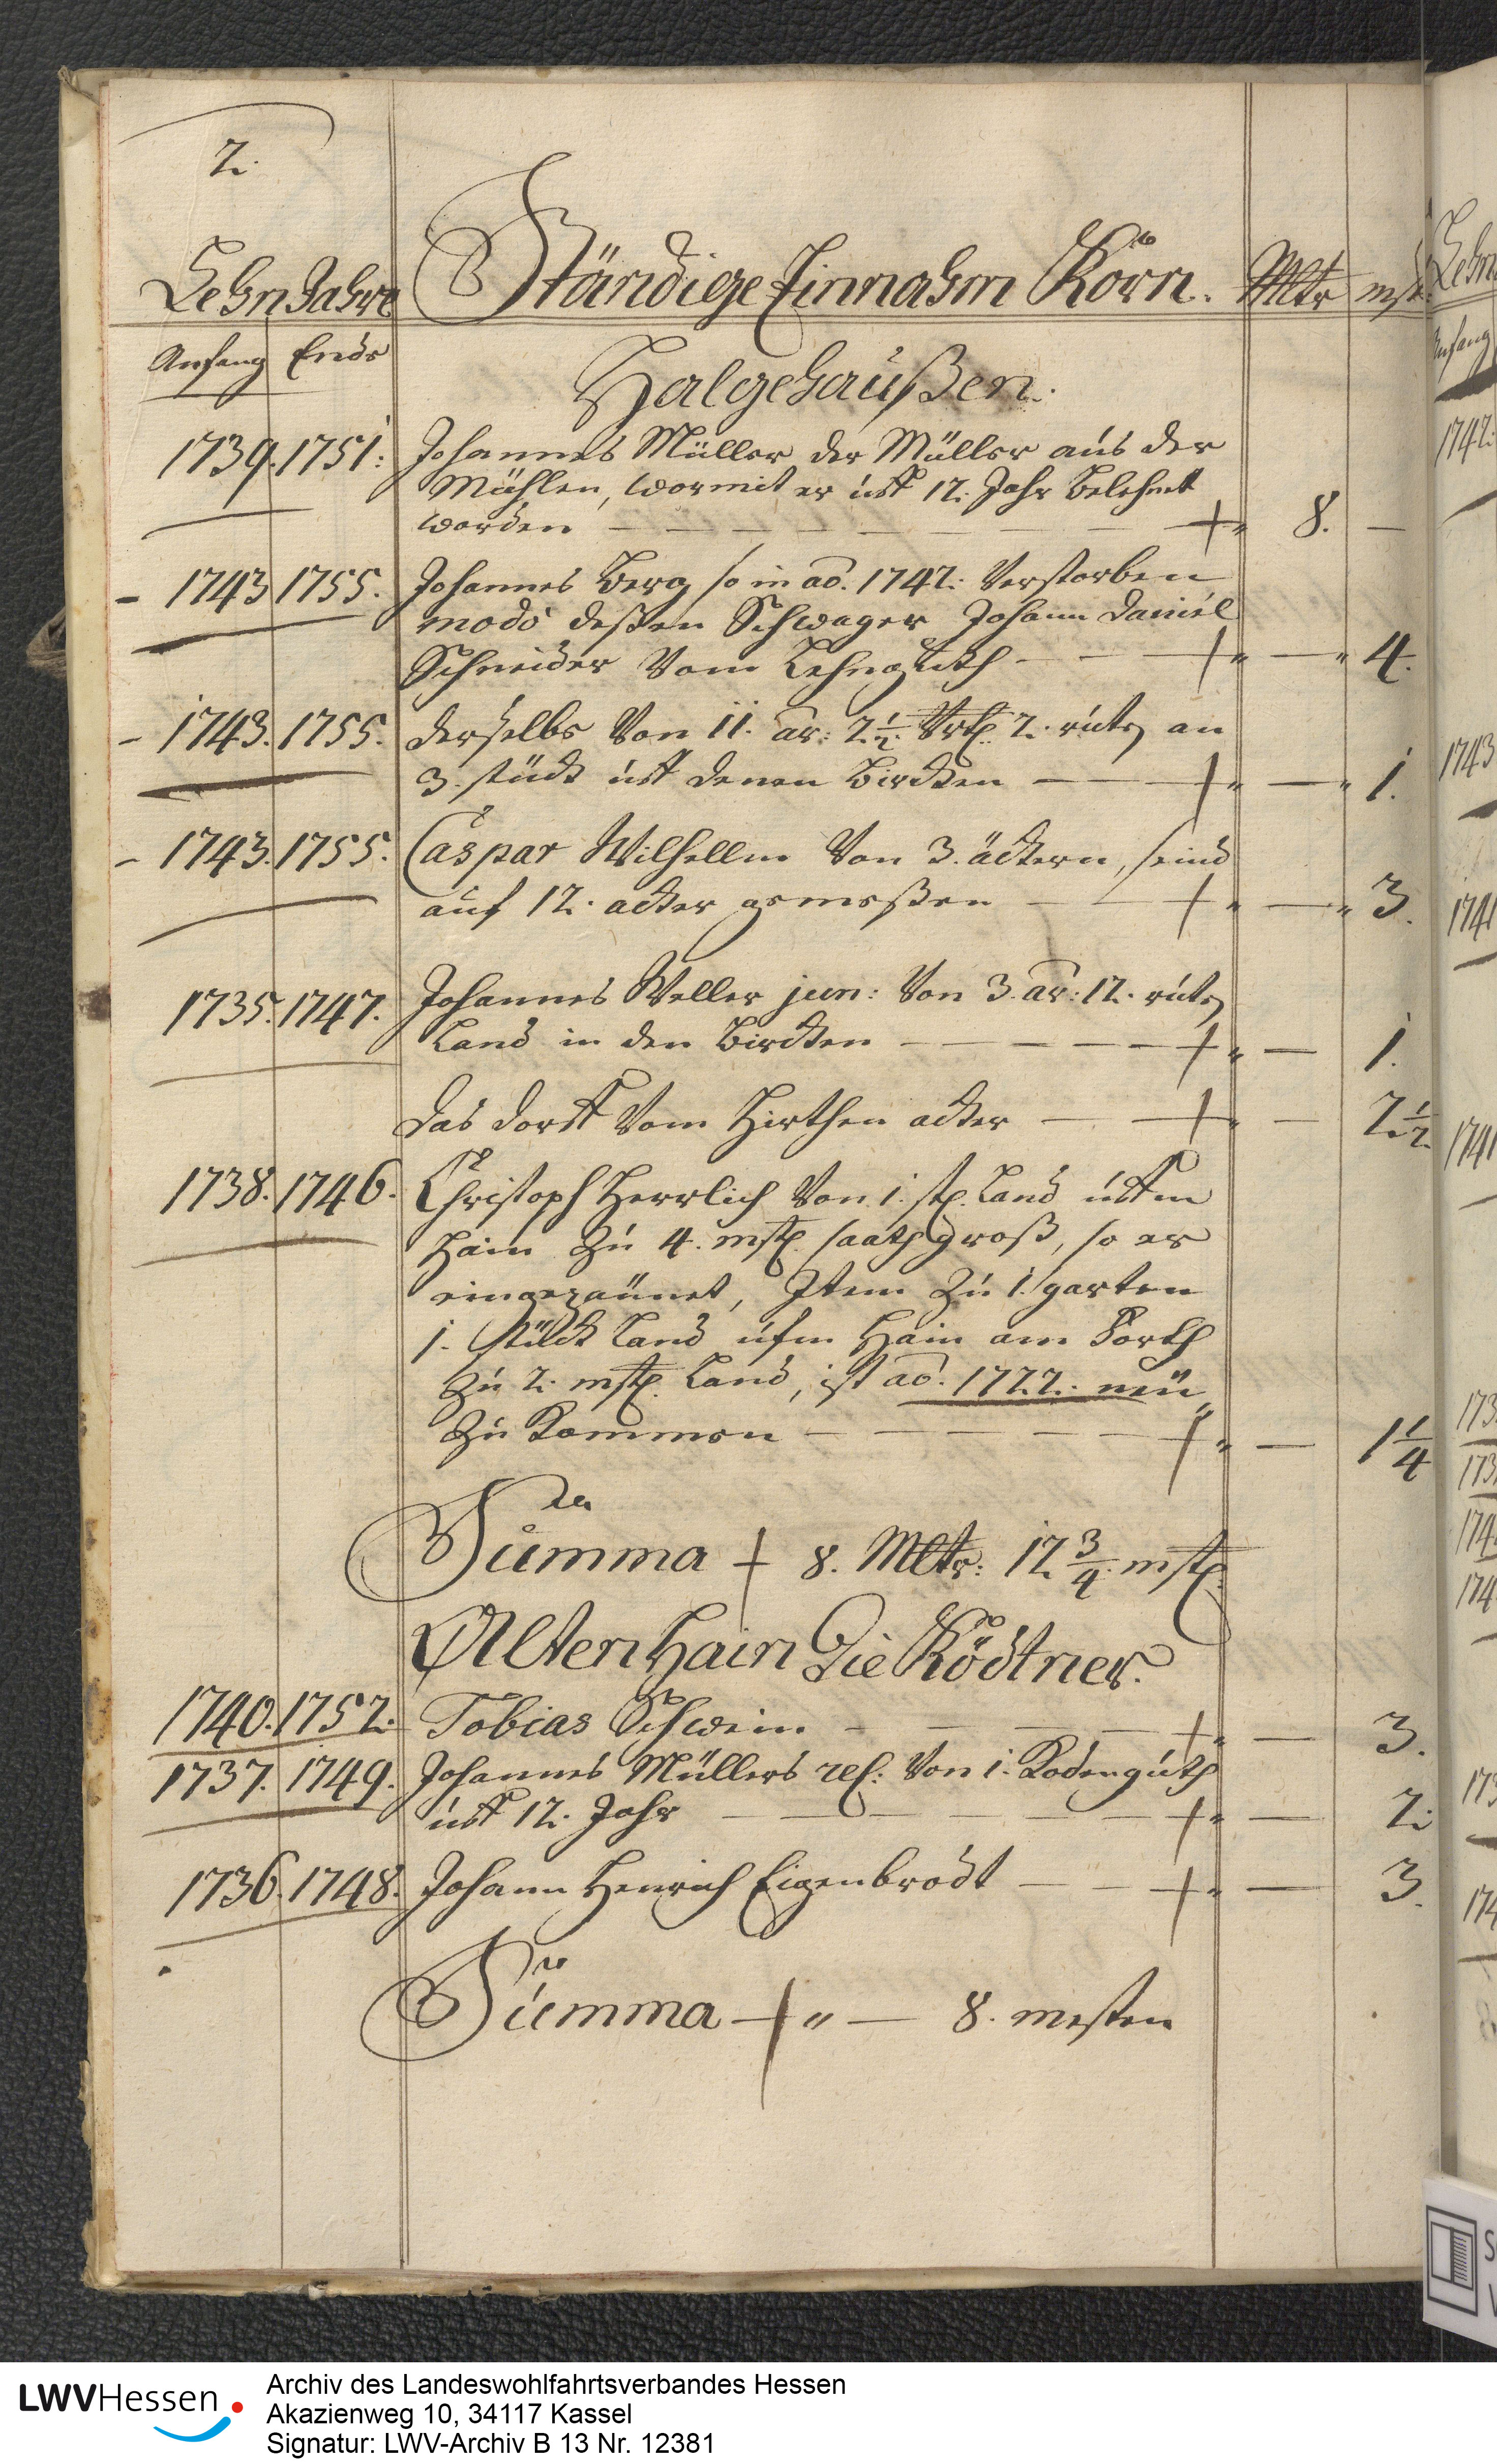 2.
Lehn Jahre Ständige Einnahm Korn. Mltr mst
Anfang Ende
Halgehaußen.
1739. 1751: Johannes Müller der Müller aus der
Mühlen, wormit er uff 12. Jahr belehnt
worden — 8. —
1743 1755. Johannes Berg so in ao. 1742: Verstorben
modo deßen Schwager Johann Daniel
Schneider Vom Lehnguth — 4.
1743. 1755. Derselbe Von 11. ar: 2½ Vrtl. 2. rut. an
3. stück uff denen Bircken — 1.
1743. 1755. Caspar Wilhellm Von 3. äckern, seind
auf 12. acker gemeßen — 3.
1735. 1747. Johannes Weller jun: Von 3. ar: 12. rut.
Land in den Bircken — 1.
Das Dorff Vom Hirthen acker — 2½
1738. 1746. Christoph Herrlich Von 1. st. Land uffm
Hain Zu 4. mst. saath groß, so er
eingezäunet, Item Zu 1. garten
1. stück Land ufm Hain am Porth
Zu 2. mst. Land, ist ao. 1722. neu
Zu Kommen — 1¼
Summa 8. Mltr: 12¾ mst.
Altenhain Die Ködtner.
1740. 1752. Tobias Schwein — 3.
1737. 1749. Johannes Müllers rel: Von 1. Kodenguth
uff 12. Jahr — 2.
1736. 1748. Johann Henrich Eigenbrodt — 3.
Summa — 8. mesten
LWVHessen
Archiv des Landeswohlfahrtsverbandes Hessen
Akazienweg 10, 34117 Kassel
Signatur: LWV-Archiv B 13 Nr. 12381